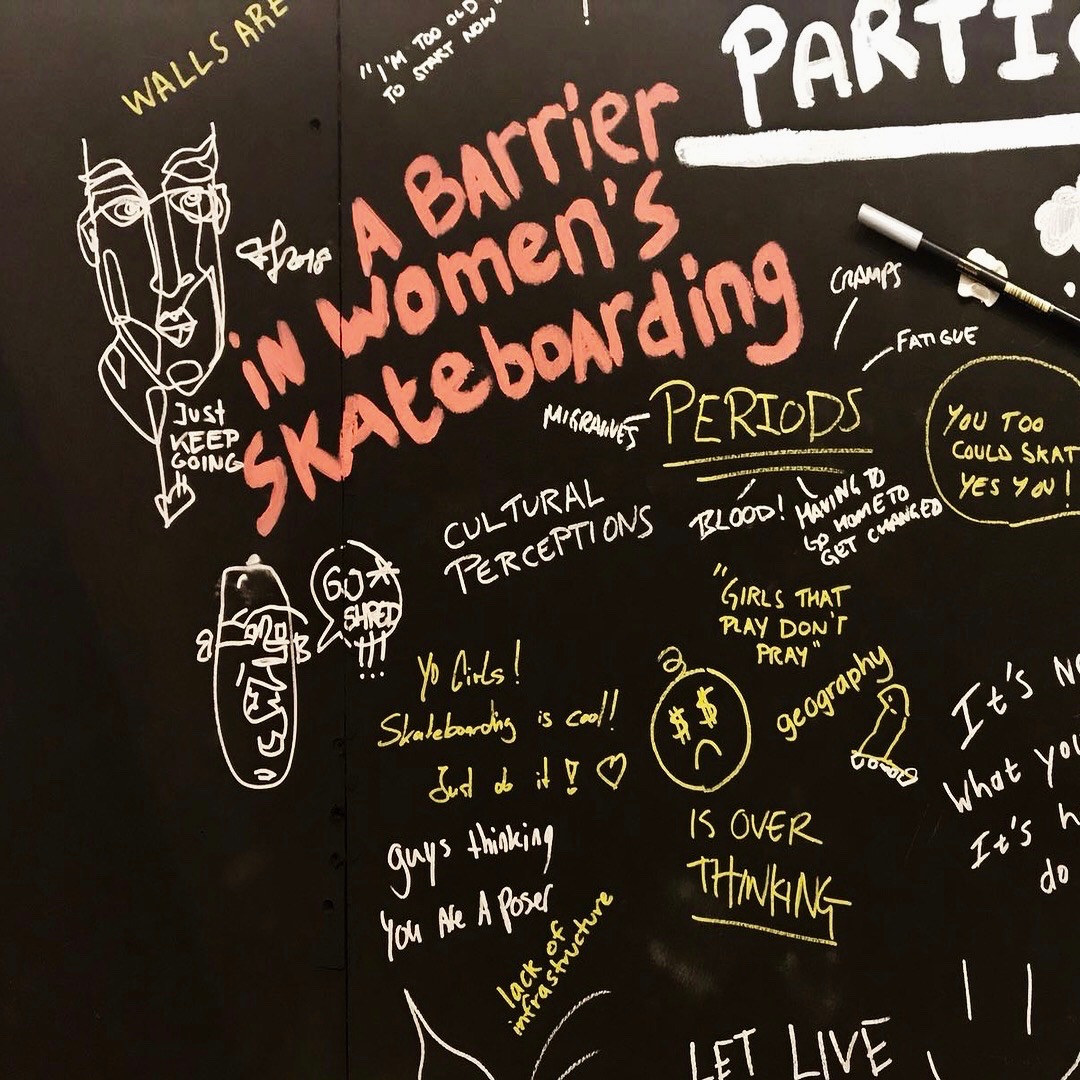 WALLS ARE
"I'M TOO OLD
TO START NOW"
!
PARTIC
A BARrier
iN women's
SKAteboARding
2018
Just
KEEP
GOING
!!
CRAMPS
FATIGUE
MIGRAINES
PERIODS
BLOOD!
HAVING TO
GO HOME TO
GET CHANGED
YOU TOO
COULD SKAT
YES YOU!
CULTURAL
PERCEPTIONS
GO
SHRED
!!!
"GIRLS THAT
PLAY DON'T
PRAY"
geography
Yo Girls!
Skateboarding is cool!
Just do it! ♡
$ $
IS OVER
THINKING
guys thinking
You Are A Poser
lack of
infrastructure
It's N
What you
It's h
do
LET LIVE